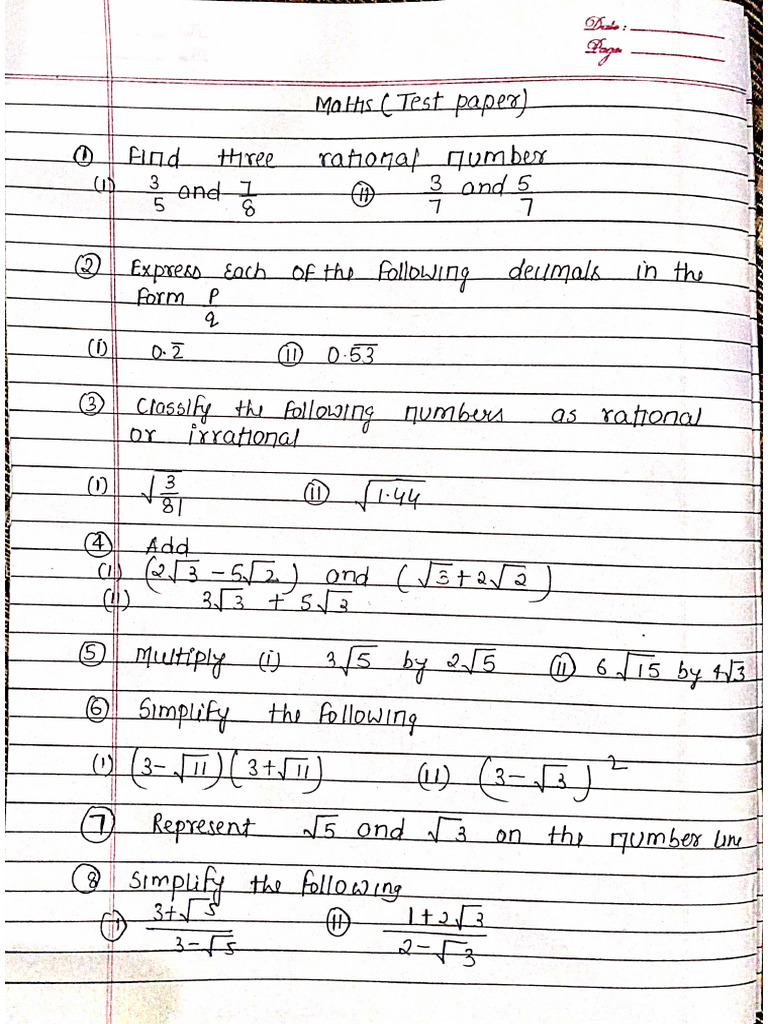 Date:
Page
Maths (Test paper)
① Find three rational number
(i) 3/5 and 7/8 (ii) 3/7 and 5/7
② Express Each of the following decimals in the
form p/q
(i) 0.2̅ (ii) 0.5̅3̅
③ Classify the following numbers as rational
or irrational
(i) √(3/81) (ii) √1.44
④ Add
(i) (2√3 - 5√2) and (√3 + 2√2)
(ii) 3√3 + 5√3
⑤ Multiply (i) 3√5 by 2√5 (ii) 6√15 by 4√3
⑥ Simplify the following
(i) (3-√11)(3+√11) (ii) (3-√3)²
⑦ Represent √5 and √3 on the number line
⑧ Simplify the following
(i) (3+√5)/(3-√5) (ii) (1+2√3)/(2-√3)